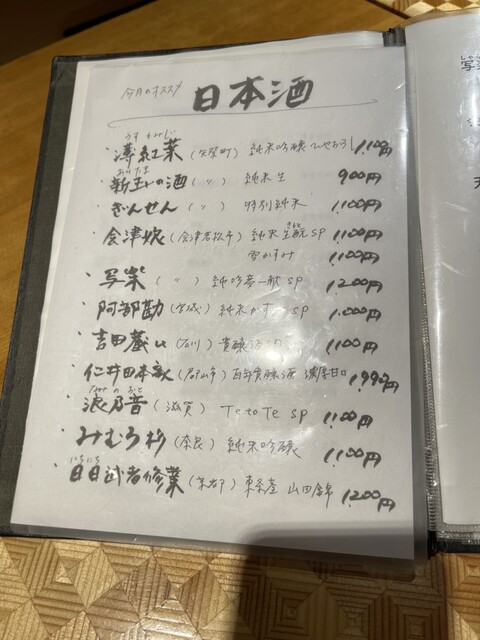 今月のオススメ 日本酒
うすもみじ
・薄紅葉(矢祭町)純米吟醸ひやおろし 1,100円
あらたま
・新玉の酒(〃)純米生 900円
・ぎんせん(〃)特別純米 1,100円
・会津娘(会津若松市)純米生酛SP 1,100円
雪がすみ 1,100円
・写楽(〃)純吟 SP 1,200円
・阿部勘(宮城)純米かすみSP 1,000円
・吉田蔵u(石川)貴醸 1,100円
・仁井田本家(郡山市)百年貴醸酒 濃厚甘口 1,990円
なみのおと
・浪乃音(滋賀)Te to Te SP 1,100円
・みむろ杉(奈良)純米吟醸 1,100円
にちにち
・日日武者修業(京都)東条産 山田錦 1,200円
写楽